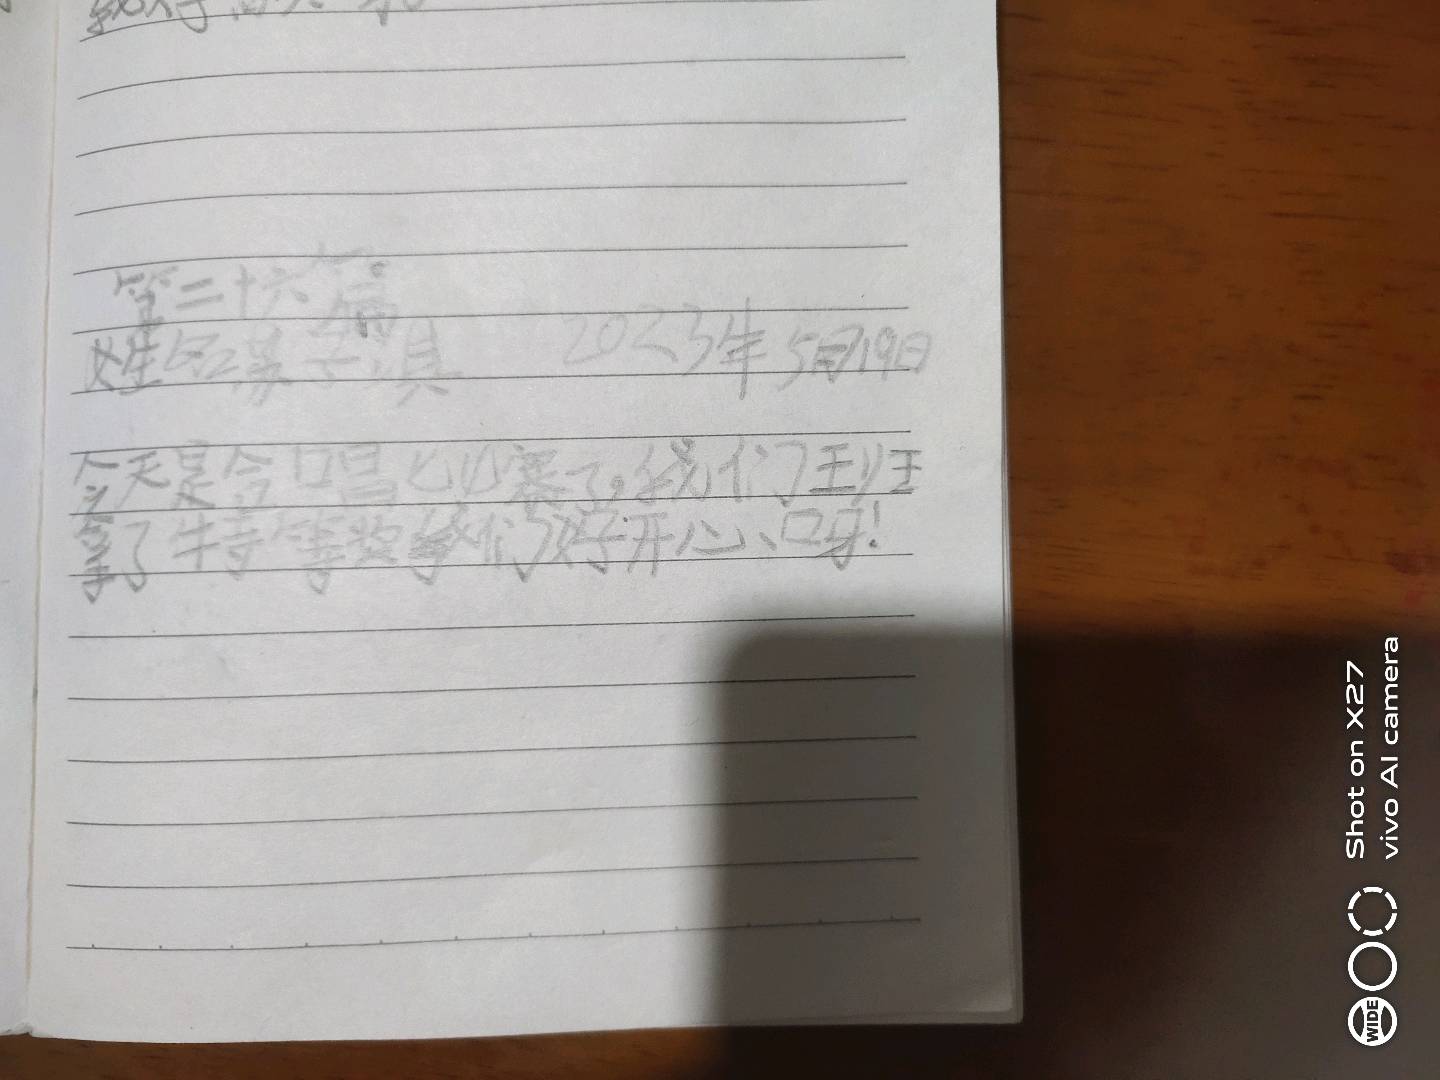 第二十六篇
姓名 子淇 2023年5月19日
今天是合唱比赛了。我们班
拿了特等奖我们好开心、呀!
Shot on X27
vivo AI camera
WIDE